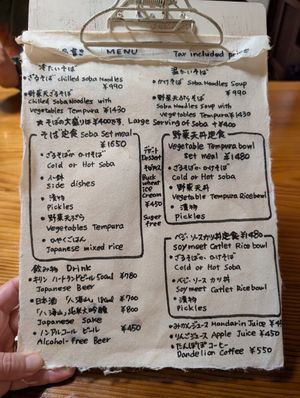 MENU
Tax included price
冷たいそば
温かいそば
・ざるそば Chilled Soba Noodles
¥990
・かけそば Soba Noodles Soup
¥990
・野菜天ざるそば
Chilled Soba Noodles with
Vegetables Tempura ¥1430
・野菜天ぷらそば
Soba Noodles Soup with
Vegetables Tempura ¥1430
Large Serving of Soba +¥400
そば定食 Soba Set meal
¥1650
・ざるそば or かけそば
Cold or Hot Soba
・小鉢
side dishes
・漬物
Pickles
・野菜天ぷら
Vegetables Tempura
・かやくごはん
Japanese mixed rice
デザート
Dessert
Buck
wheat
ice
cream
¥450
Sugar
free
野菜天丼定食
Vegetable Tempura bowl
set meal ¥1480
・ざるそば or かけそば
Cold or Hot Soba
・野菜天丼
Vegetable Tempura Rice bowl
・漬物
Pickles
ベジ・ソースカツ丼定食 ¥1480
soy meet Cutlet Rice bowl
・ざるそば or かけそば
Cold or Hot Soba
・ベジ・ソースカツ丼
soy meet Cutlet Rice bowl
・漬物
Pickles
飲み物 Drink
・キリン ハートランドビール 500ml ¥780
Japanese Beer
・日本酒 「八海山」 180ml ¥700
「八海山」純米大吟醸 ¥800
Japanese Sake
・ノンアルコールビール ¥450
Alcohol-Free Beer
・みかんジュース Mandarin Juice
・りんごジュース Apple Juice ¥450
・たんぽぽコーヒー
Dandelion Coffee ¥550